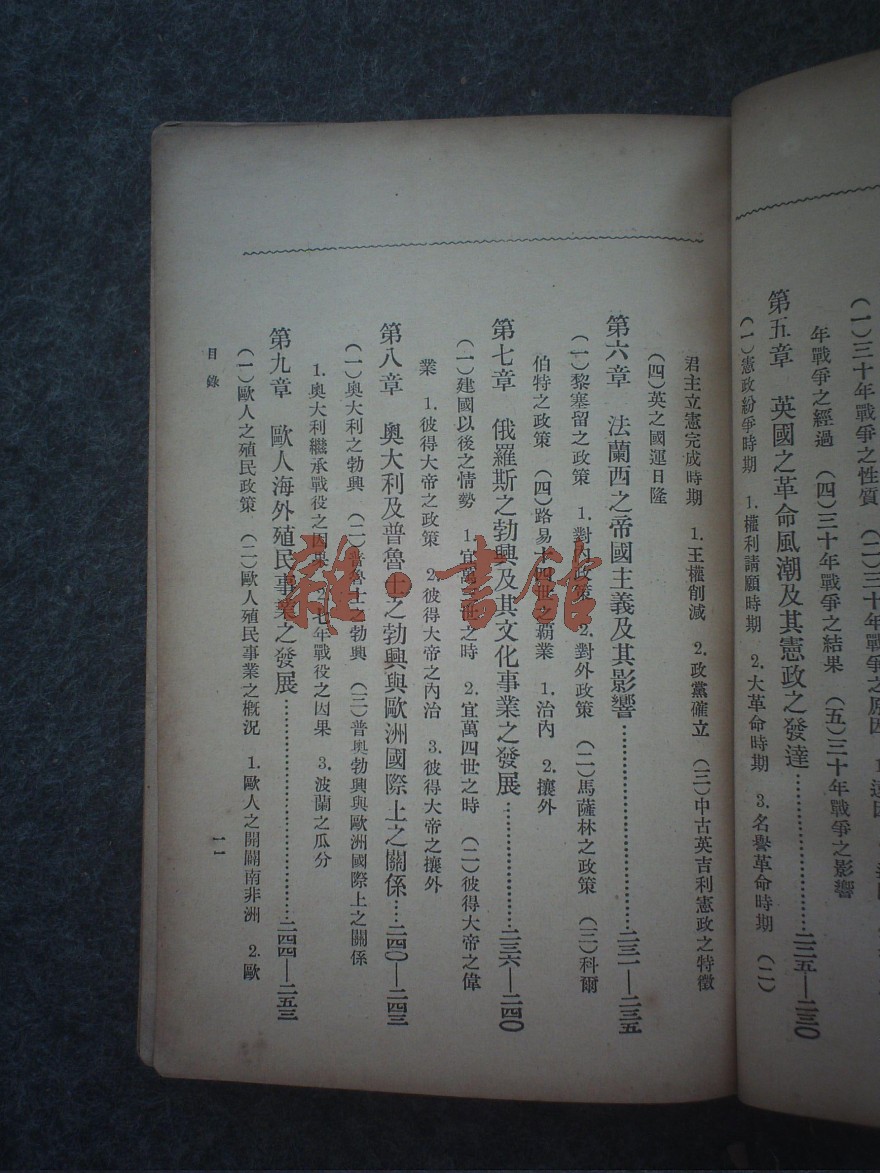 (一)三十年戰爭之性質 (二)三十年戰爭之原因 1.遠因
年戰爭之經過 (四)三十年戰爭之結果 (五)三十年戰爭之影響
第五章 英國之革命風潮及其憲政之發達……二二五—二三〇
(一)憲政紛爭時期 1.權利請願時期 2.大革命時期 3.名譽革命時期 (二)
君主立憲完成時期 1.王權削減 2.政黨確立 (三)中古英吉利憲政之特徵
(四)英之國運日隆
第六章 法蘭西之帝國主義及其影響……二三一—二三五
(一)黎塞留之政策 1.對內政策 2.對外政策 (二)馬薩林之政策 (三)科爾
伯特之政策 (四)路易十四世之霸業 1.治內 2.攘外
第七章 俄羅斯之勃興及其文化事業之發展……二三六—二四〇
(一)建國以後之情勢 1.宜萬三世之時 2.宜萬四世之時 (二)彼得大帝之偉
業 1.彼得大帝之政策 2.彼得大帝之內治 3.彼得大帝之攘外
第八章 奧大利及普魯士之勃興與歐洲國際上之關係……二四〇—二四三
(一)奧大利之勃興 (二)普魯士之勃興 (三)普奧勃興與歐洲國際上之關係
1.奧大利繼承戰役之因果 2.七年戰役之因果 3.波蘭之瓜分
第九章 歐人海外殖民事業之發展……二四四—二五三
(一)歐人之殖民政策 (二)歐人殖民事業之概況 1.歐人之開闢南非洲 2.歐
目錄 一一
雜·書館